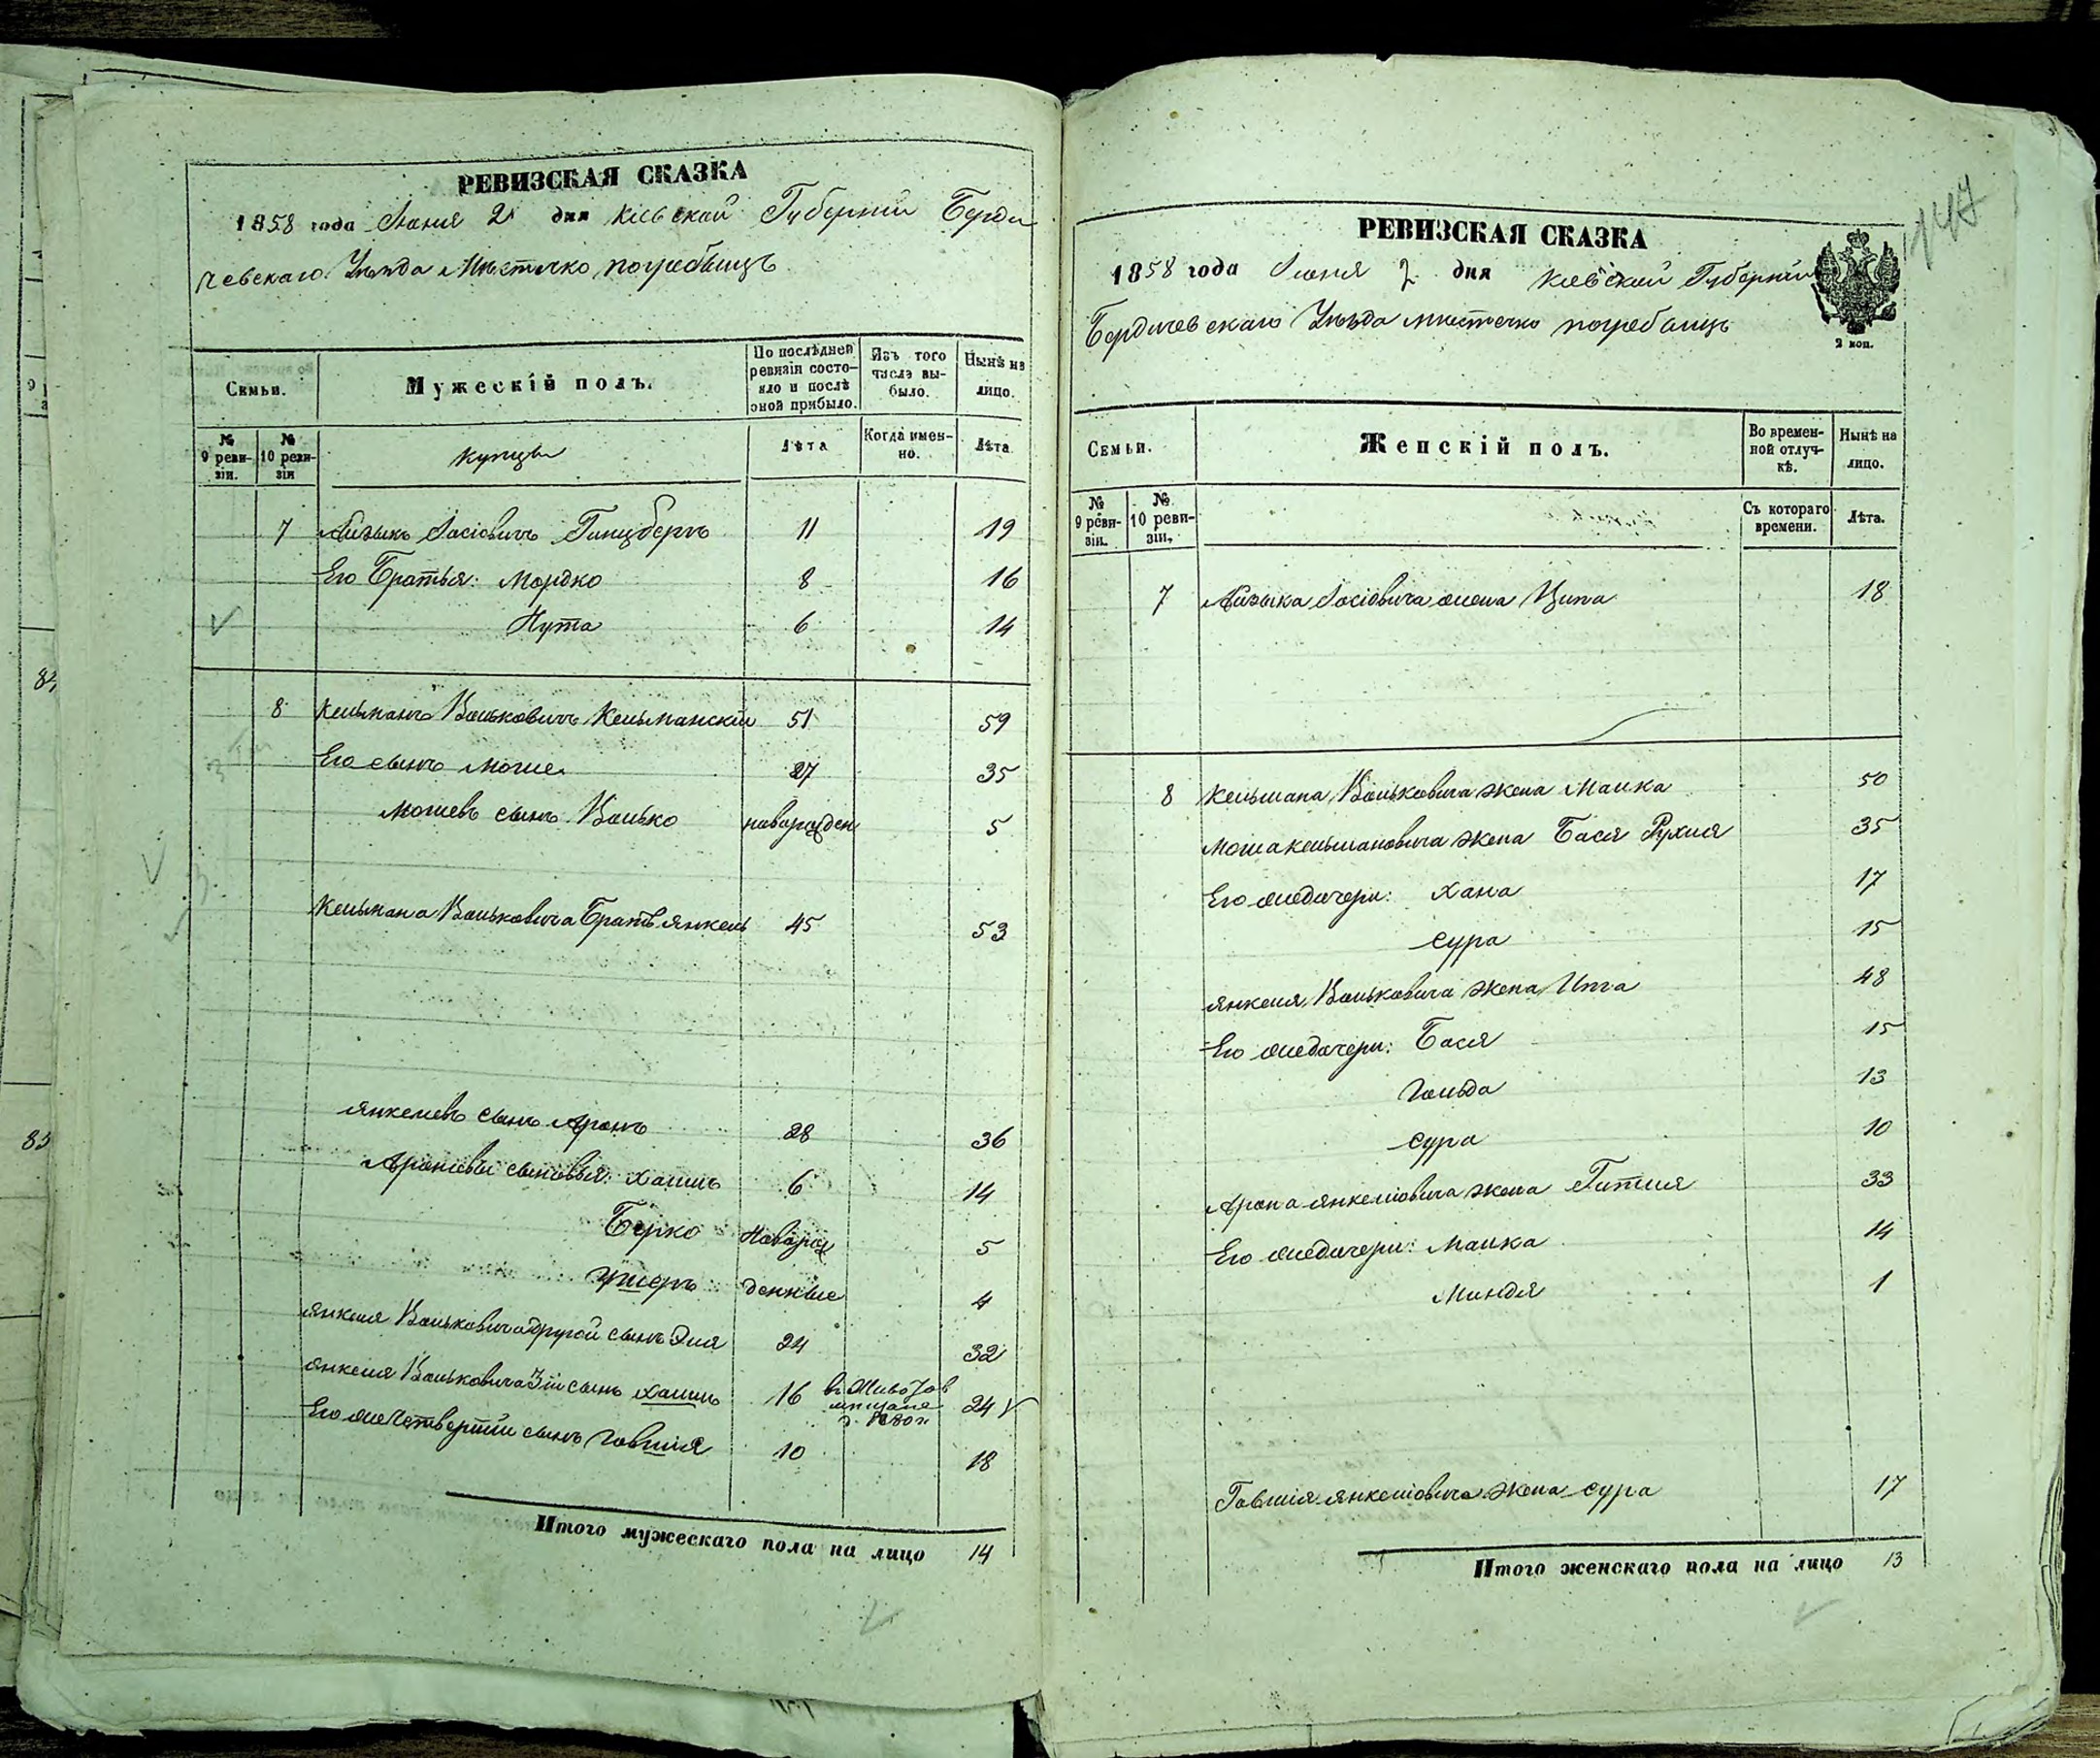 РЕВИЗСКАЯ СКАЗКА
1858 года Июня 2 дня Киевской Губернии Берди
чевскаго Уѣзда Мѣстечко погребищъ
Семьи.
Мужескій полъ.
По послѣдней ревизіи состояло и послѣ оной прибыло.
Изъ того числа выбыло.
Нынѣ на лицо.
№ 9 ревизіи.
№ 10 ревизіи
купцы
Лѣта
Когда именно.
Лѣта
7 Айзыкъ Іосіовичъ Гинцбергъ 11 19
Его Братья: Мордко 8 16
Нута 6 14
8 Кельманъ Вольковичъ Кельманскій 51 59
Его сынъ Моше 27 35
Мошевъ сынъ Волько новорожден 5
Кельмана Вольковича Братъ Янкель 45 53
Янкелевъ сынъ Аронъ 28 36
Ароновы сыновья: Хаимъ 6 14
Берко Новорож 5
Ушеръ денные 4
Янкеля Вольковича другой сынъ Эля 24 32
Янкеля Вольковича 3й сынъ Хаимъ 16 24
Его же Четвертый сынъ Говшія 10 18
Итого мужескаго пола на лицо 14
147
РЕВИЗСКАЯ СКАЗКА
1858 года Июня 2 дня Киевской Губерніи
Бердичевскаго Уѣзда мѣстечко погребищъ
2 коп.
Семьи.
Женскій полъ.
Во временной отлучкѣ.
Нынѣ на лицо.
№ 9 ревизіи.
№ 10 ревизіи.
Съ котораго времени.
Лѣта.
7 Айзыка Іосіовича жена Ципа 18
8 Кельмана Вольковича жена Малка 50
Моша Кельмановича жена Бася Рухля 35
Его же дочери: Хана 17
Сура 15
Янкеля Вольковича жена Ита 48
Его же дочери: Бася 15
Гольда 13
Сура 10
Арона Янкеліовича жена Гитля 33
Его же дочери: Малка 14
Миндя 1
Говшія Янкеліовича жена Сура 17
Итого женскаго пола на лицо 13